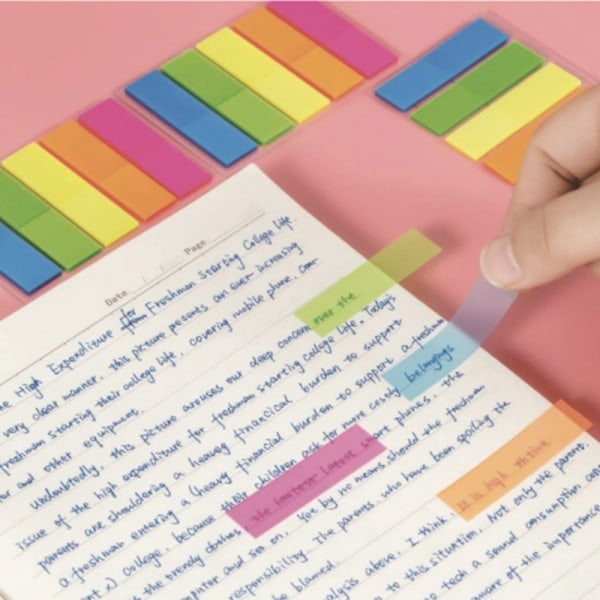 Date. Page
The High Expenditure for Freshman Starting College life.
very clear manner, this picture presents an ever-increasing
freshman starting their college life, covering mobile phone, com-
and other equipment.
Undoubtedly, this picture arouses our deep concern over the Today's
issue of the high expenditure for freshman starting college life.
parents are shouldering a heavy financial burden to support
a freshman entering a (heavy financial burden to support a freshman belongings
college, because their children ask for more costly
the trendy clothes, the fastest latest smart phones, the
so on. Yet by no means should the freshman
responsibility. The parents, who have been spoiling the
be blamed.
analysis above, I think, It is high this
to this situation. Not only the parents
to tech a sound consumption
aware of the importance